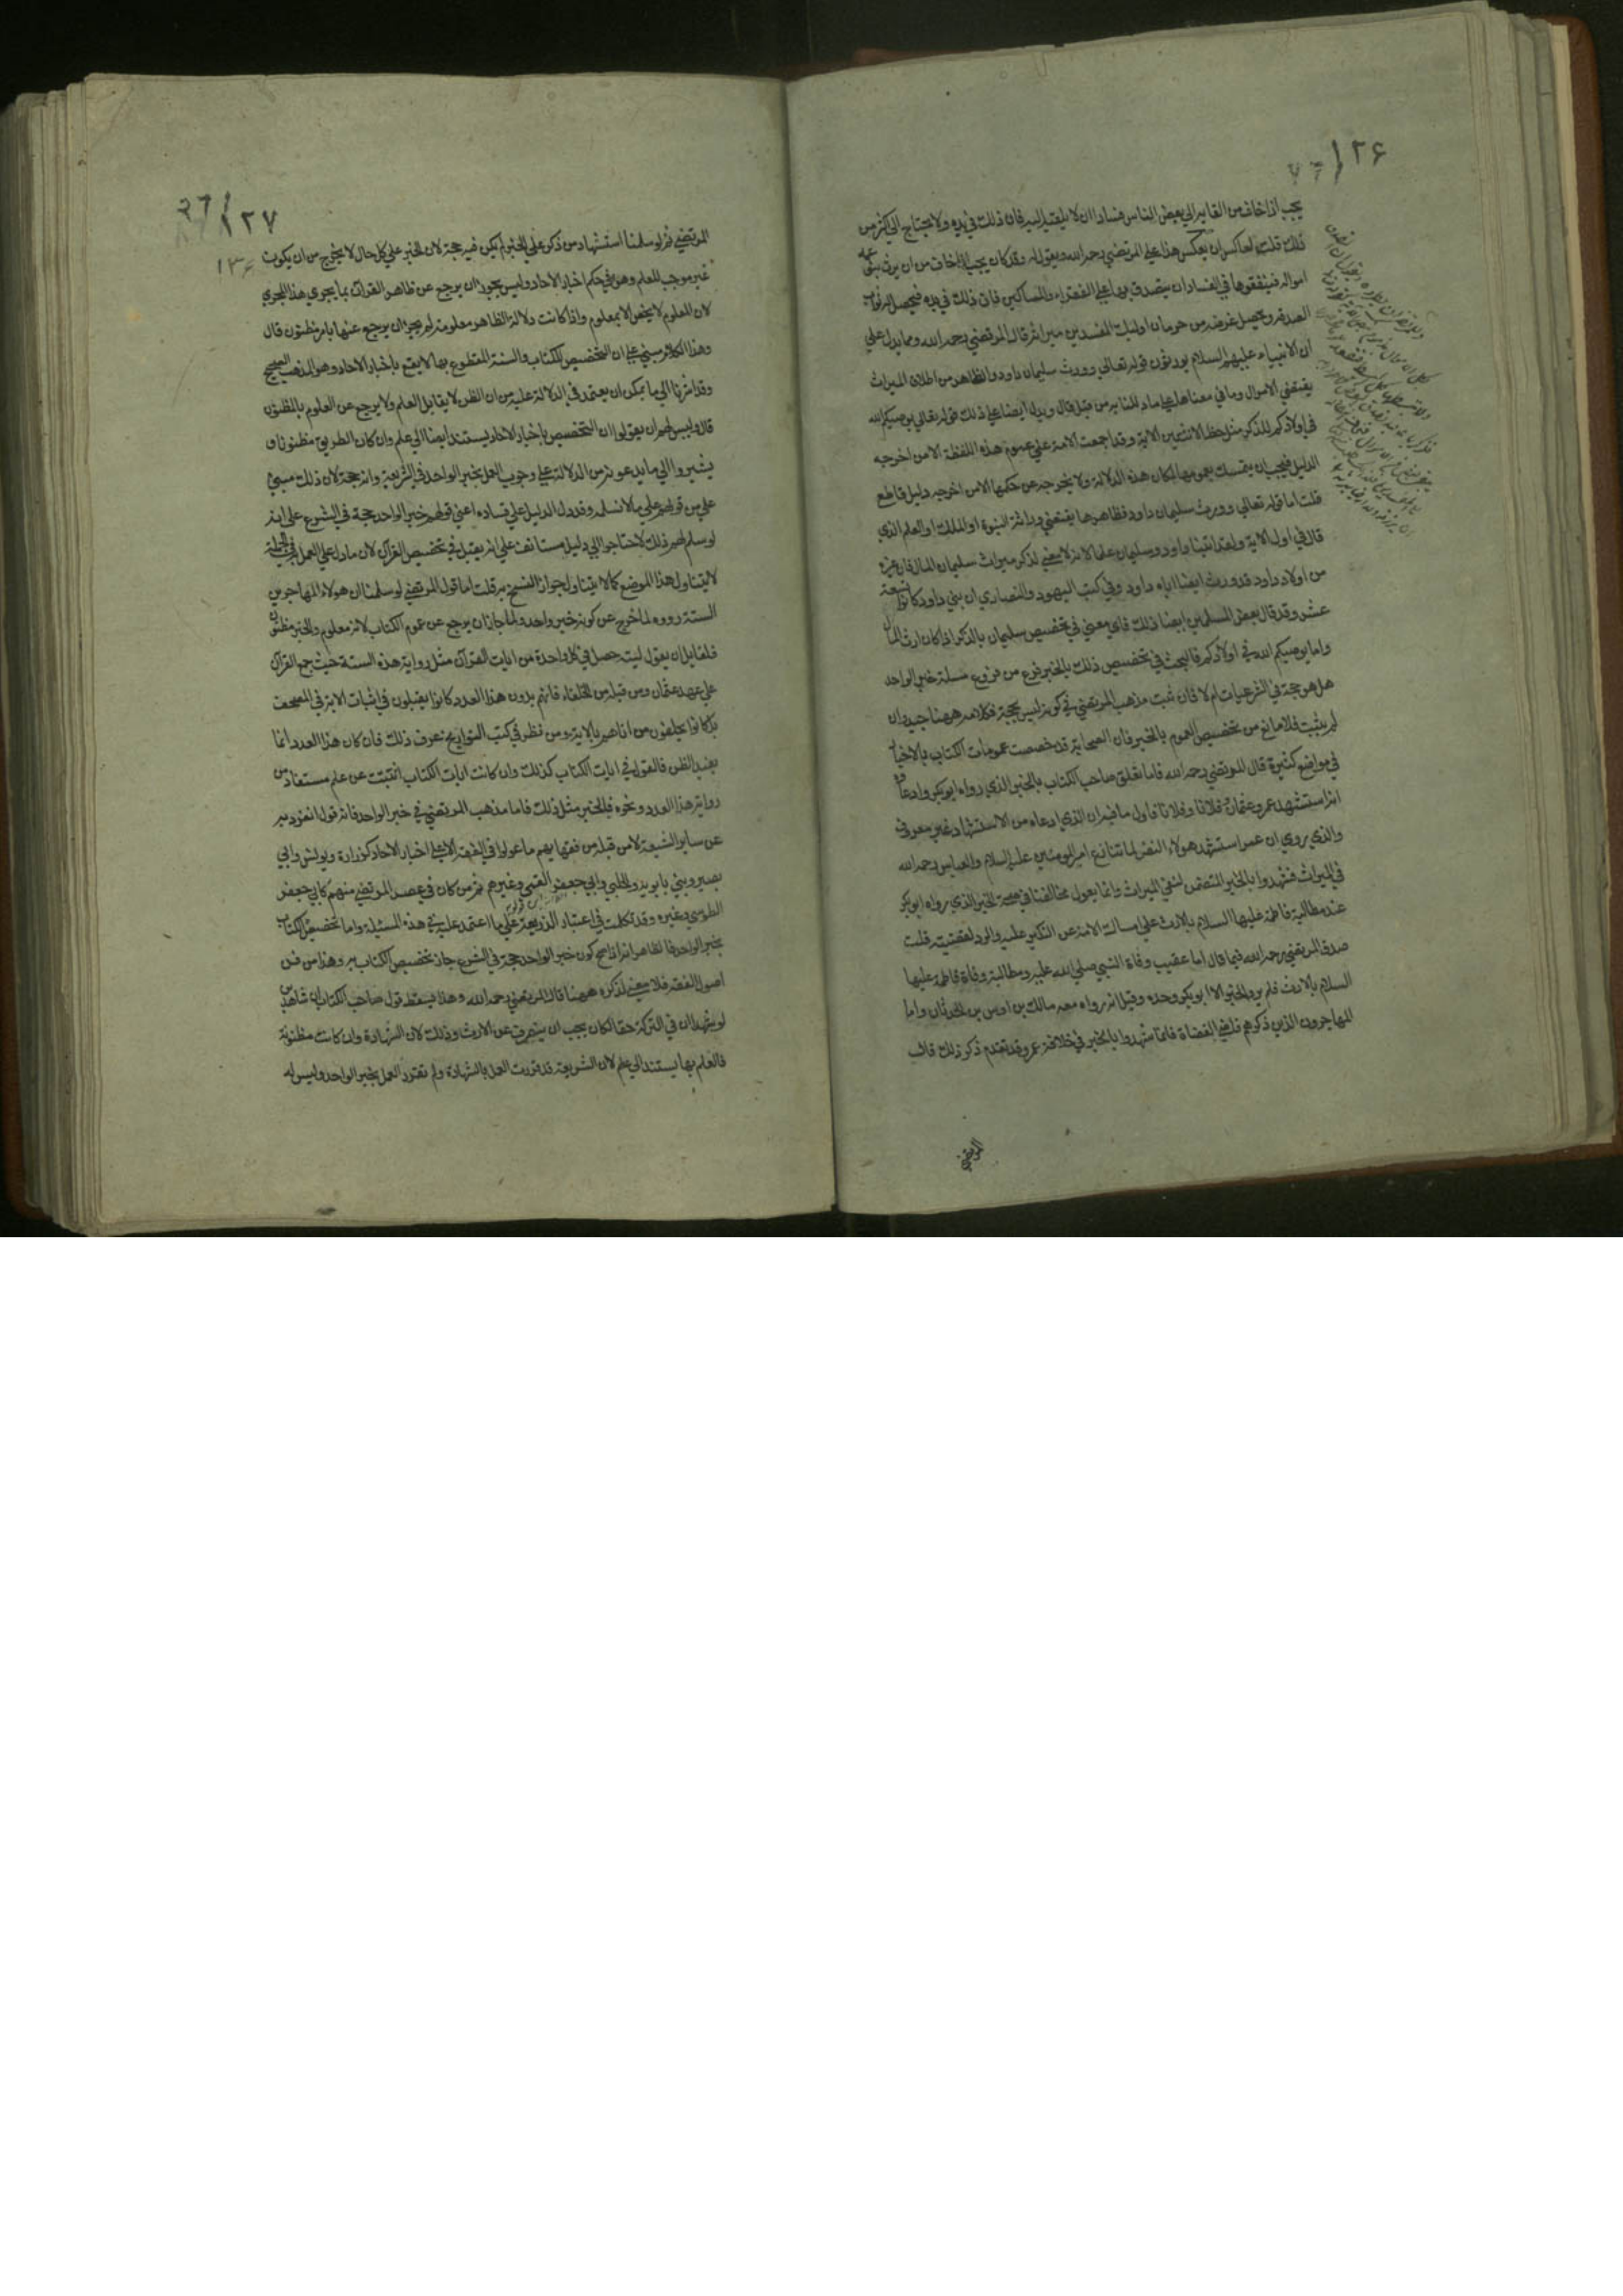 ١٢۶
يجب اذا خاف من القا يد الي بعض الناس فسادا ان لا يلقيه اليه فان ذلك في يده ولا يحتاج الي اكثر من
ذلك قلت لعاكس ان يعكس هذا علي المرتضي رحمه الله ويقول له وقد كان يجب اذا خاف من ان يرث بنو عمه
امواله فينفقوها في الفساد ان يتصدق بها علي الفقراء والمساكين فان ذلك في يده فيحصل له ثواب
الصدقه ويحصل غرضه من حرمان اولئك المفسدين ميراثه قال المرتضي رحمه الله ومما يدل علي
ان الانبياء عليهم السلام يورثون قوله تعالي وورث سليمان داود والظاهر من اطلاق الميراث
يقتضي الاموال وما في معناها علي ما دللنا به من قبل قال ويدل ايضا علي ذلك قوله تعالي يوصيكم الله
في اولادكم للذكر مثل حظ الانثيين الاية وقد اجمعت الامة علي عموم هذه اللفظة الا من اخرجه
الدليل فيجب ان يتمسك بعمومها لمكان هذه الدلالة ولا يخرج عن حكمها الا من اخرجه دليل قاطع
قلت اما قوله تعالي وورث سليمان داود فظاهرها يقتضي وراثة النبوة او الملك او العلم الذي
قال في اول الاية ولقد اتينا داود وسليمان علما لانه لا معني لذكر ميراث سليمان المال فان غيره
من اولاد داود قد ورث ايضا اباه داود وفي كتب اليهود والنصاري ان بني داود كانوا تسعة
عشر وقد قال بعض المسلمين ايضا ذلك فاي معني في تخصيص سليمان بالذكر اذا كان ارث المال
واما يوصيكم الله في اولادكم فالبحث في تخصيص ذلك بالخبر فرع من فروع مسئلة خبر الواحد
هل هو حجة في الشرعيات ام لا فان ثبت مذهب المرتضي في كونه ليس بحجة فكلامه ههنا جيد وان
لم يثبت فلا مانع من تخصيص العموم بالخبر فان الصحابة قد خصصت عمومات الكتاب بالاخبار
في مواضع كثيرة قال المرتضي رحمه الله فاما تعلق صاحب الكتاب بالخبر الذي رواه ابو بكر وادعاؤه
انه استشهد عمر وعثمان وفلانا وفلانا فاول ما فيه ان الذي ادعاه من الاستشهاد غير معروف
والذي يروي ان عمر استشهد هولاء النفر لما تنازع امير المومنين عليه السلام والعباس رحمه الله
في الميراث فشهدوا بالخبر المتضمن لنفي الميراث وانما يعول مخالفنا في صحة الخبر الذي رواه ابو بكر
عند مطالبة فاطمة عليها السلام بالارث علي امساك الامة عن النكير عليه والرد لقضيته قلت
صدق المرتضي رحمه الله فيما قال اما عقيب وفاة النبي صلي الله عليه ومطالبة فاطمة عليها
السلام بالارث فلم يرو الخبر الا ابو بكر وحده وقيل انه رواه معه مالك بن اوس بن الحدثان واما
المهاجرون الذين ذكرهم قاضي القضاة فانما شهدوا بالخبر في خلافة عمر وقد تقدم ذكر ذلك قال
المرتضي
١٢٧
١٣۶
المرتضي ثم لو سلمنا استشهاد من ذكر علي الخبر لم يكن فيه حجة لان الخبر علي كل حال لا يخرج من ان يكون
غير موجب للعلم وهو في حكم اخبار الاحاد وليس يجوز ان يرجع عن ظاهر القران بما يجري هذا المجري
لان المعلوم لا يخص الا بمعلوم واذا كانت دلالة الظاهر معلومة لم يجز ان يرجع عنها بامر مظنون قال
وهذا الكلام مبني علي ان التخصيص للكتاب والسنة المقطوع بها لا يقع باخبار الاحاد وهو المذهب الصحيح
وقد اشرنا الي ما يمكن ان يعتمد في الدلالة عليه من ان الظن لا يقابل العلم ولا يرجع عن المعلوم بالمظنون
قال وليس لهم ان يقولوا ان التخصيص باخبار الاحاد يستند ايضا الي علم وان كان الطريق مظنونا و
يشيروا الي ما يدعونه من الدلالة علي وجوب العمل بخبر الواحد في الشريعة وانه حجة لان ذلك مبني
علي من قولهم علي ما لا نسلمه وقد دل الدليل علي فساده اعني قولهم خبر الواحد حجة في الشرع علي انه
لو سلم لهم ذلك لاحتاجوا الي دليل مستانف علي انه يقبل في تخصيص القرآن لان ما دل علي العمل به في الجملة
لا يتناول هذا الموضع كما لا يتناول جواز النسخ به قلت اما قول المرتضي لو سلمنا ان هولاء المهاجرين
الستة رووه لما خرج عن كونه خبر واحد ولما جاز ان يرجع عن عموم الكتاب لانه معلوم والخبر مظنون
فلقايل ان يقول ليته حصل في كل واحدة من ايات القرآن مثل رواية هذه الستة حيث جمع القرآن
علي عهد عثمان ومن قبله من الخلفاء فانهم بدون هذا العدد كانوا يقبلون في اثبات الاية في المصحف
بل كانوا يحلفون من اتاهم بالاية ومن نظر في كتب التواريخ عرف ذلك فان كان هذا العدد انما
يفيد الظن فالقول في ايات الكتاب كذلك وان كانت ايات الكتاب اثبتت عن علم مستفاد من
رواية هذا العدد ونحوه فالخبر مثل ذلك فاما مذهب المرتضي في خبر الواحد فانه قول انفرد به
عن ساير الشيعة لان من قبله من فقهايهم ما عولوا في الفقه الا علي اخبار الاحاد كزرارة ويونس وابي
بصير وبني بابويه والحلبي وابي جعفر القمي وغيرهم ثم من كان في عصر المرتضي منهم كابي جعفر
الطوسي وغيره وقد تكلمت في اعتبار الذريعة علي ما اعتمد عليه في هذه المسئلة واما تخصيص الكتاب
بخبر الواحد فالظاهر انه اذا صح كون خبر الواحد حجة في الشرع جاز تخصيص الكتاب به وهذا من فن
اصول الفقه فلا معني لذكره ههنا قال المرتضي رحمه الله وهذا يسقط قول صاحب الكتاب ان شاهدين
لو شهدا ان في التركة حقا لكان يجب ان ينصرف عن الارث وذلك لان الشهادة وان كانت مظنونة
فالعلم بها يستند الي علم لان الشريعة قد قررت العمل بالشهادة ولم تقرر العمل بخبر الواحد وليس له